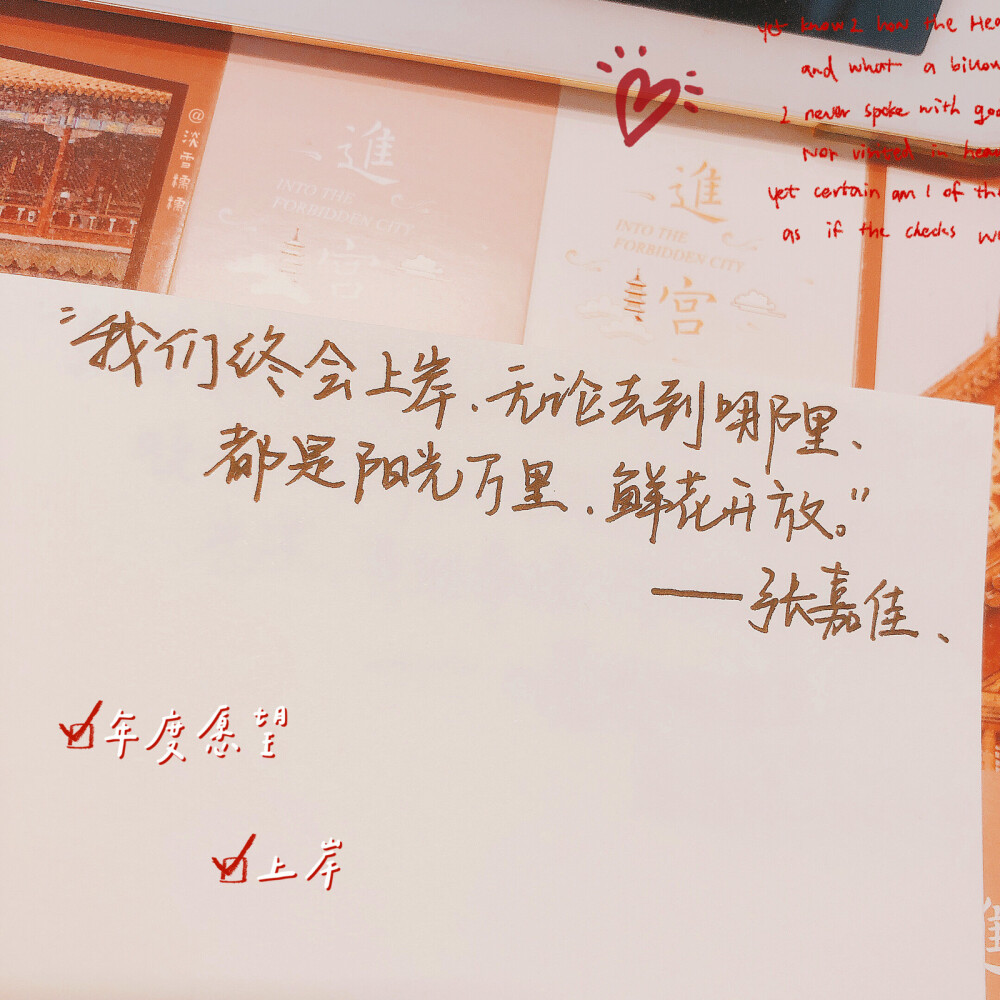 yet know I how the Hea
and what a billow
I never spoke with god
Nor visited in heav
yet certain am I of the
as if the checks we
@淡雪檽檽
進
INTO THE
FORBIDDEN CITY
宮
進
INTO THE
FORBIDDEN CITY
宮
"我们终会上岸、无论去到哪里、
都是阳光万里、鲜花开放。"
——张嘉佳、
年度愿望
上岸
進